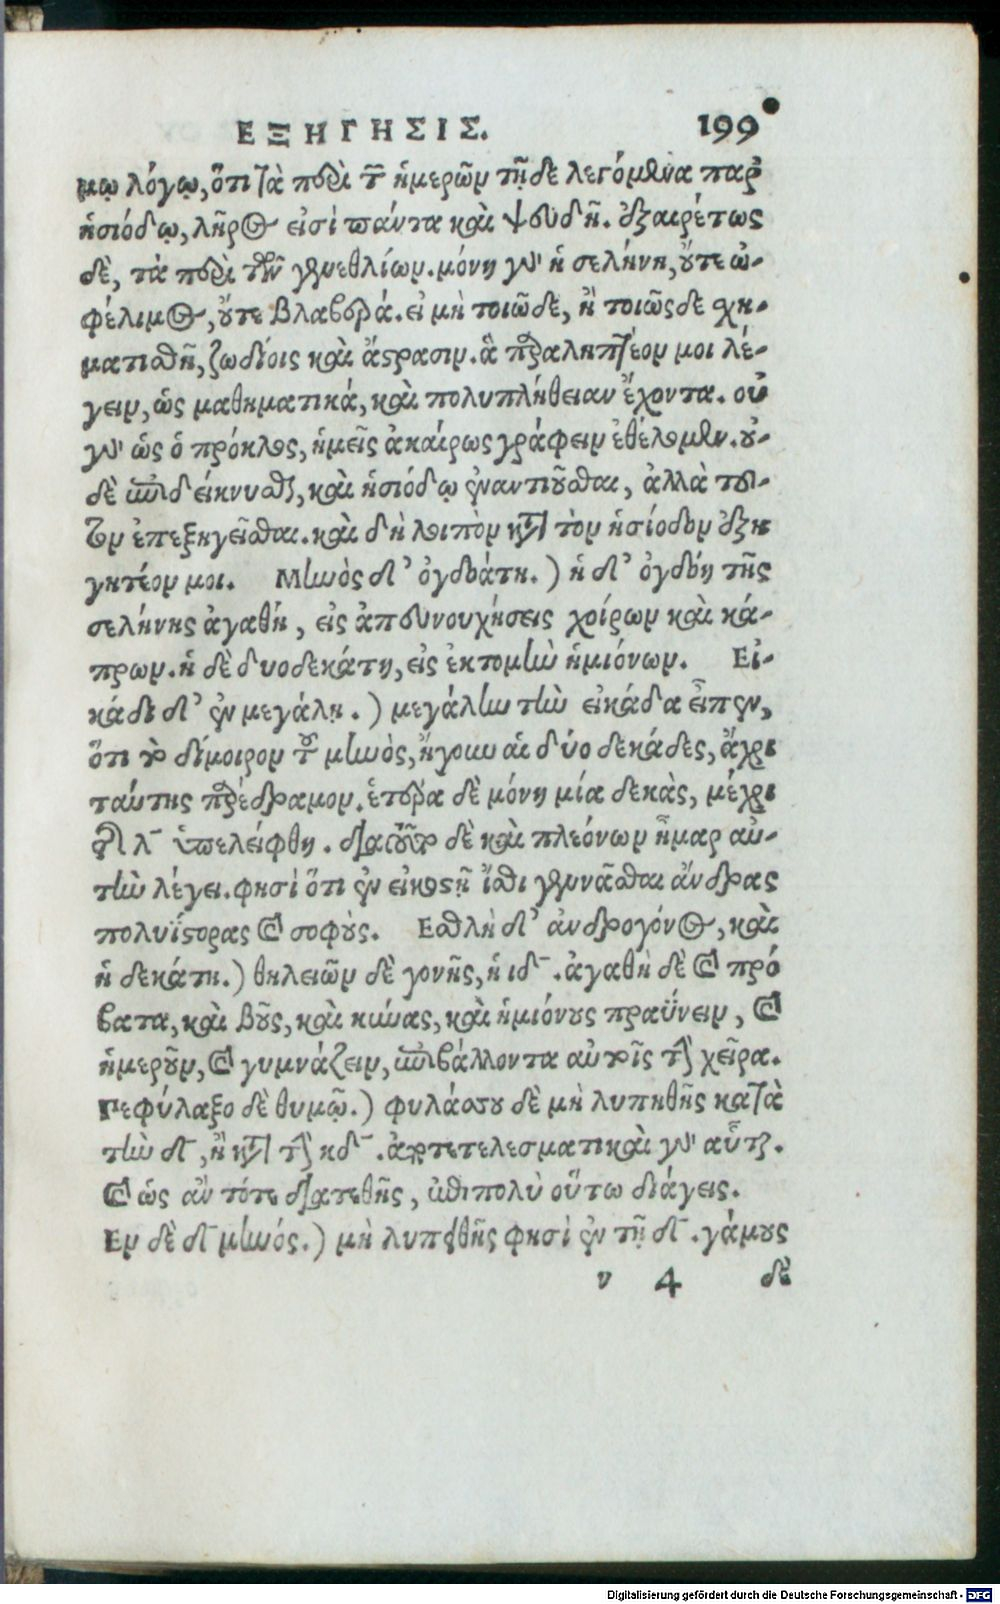 ΕΞΗΓΗΣΙΣ. 199
μῳ λόγῳ, ὅτι τὰ περὶ τῶν ἡμερῶν τῇδε λεγόμενα παρ
ἡσιόδῳ, λῆρος εἰσὶ πάντα καὶ ψευδῆ. ἐξαιρέτως
δὲ, τὰ περὶ τῶν γενεθλίων. μόνη γὰρ ἡ σελήνη, οὔτε ὠ-
φέλιμος, οὔτε βλαβερά. εἰ μὴ τοιῶσδε, ἢ τοιῶσδε χη-
ματισθῇ, ζωδίοις καὶ ἄστρασιν. ἃ παραληπτέον μοι λέ-
γειν, ὡς μαθηματικά, καὶ πολυπλήθειαν ἔχοντα. οὐ
γὰρ ὡς ὁ πρόκλος, ἡμεῖς ἀκαίρως γράφειν ἐθέλομεν. οὐ-
δὲ ἐπιδείκνυσθαι, καὶ ἡσιόδῳ ἐναντιοῦσθαι, ἀλλὰ του-
τον ἐπεξηγεῖσθαι. καὶ δὴ λοιπὸν κατὰ τὸν ἡσίοδον ἐξη
γητέον μοι. Μηνὸς δ' ὀγδοάτη.) ἡ δ' ὀγδόη τῆς
σελήνης ἀγαθή, εἰς ἀπευνουχήσεις χοίρων καὶ κά-
πρων. ἡ δὲ δυοδεκάτη, εἰς ἐκτομὴν ἡμιόνων. Εἰ-
κάδι δ' ἐν μεγάλῃ.) μεγάλην τὴν εἰκάδα εἶπεν,
ὅτι τὸ δίμοιρον τοῦ μηνὸς, ἤγουν αἱ δύο δεκάδες, ἄχρι
ταύτης παρέδραμον. ἑτέρα δὲ μόνη μία δεκὰς, μέχρι
τῶν λ ὑπελείφθη. διατοῦτο δὲ καὶ πλεόνων ἦμαρ αὐ-
τὴν λέγει. φησὶ ὅτι ἐν εἰκοστῇ ἴσθι γεννᾶσθαι ἄνδρας
πολυΐστορας καὶ σοφούς. Εσθλὴ δ' ἀνδρογόνος, καὶ
ἡ δεκάτη.) θηλειῶν δὲ γονῆς, ἡ ιδ. ἀγαθὴ δὲ καὶ πρό
βατα, καὶ βοῦς, καὶ κύνας, καὶ ἡμιόνους πραΰνειν, καὶ
ἡμεροῦν, καὶ γυμνάζειν, ἐπιβάλλοντα αὐτοῖς τὴν χεῖρα.
Πεφύλαξο δὲ θυμῷ.) φυλάσσου δὲ μὴ λυπηθῇς κατὰ
τὴν δ, ἢ κατὰ τὴν κδ. ἀποτελεσματικαὶ γὰρ αὗται.
καὶ ὡς ἂν τότε διατεθῇς, ὡσεπιπολὺ οὕτω διάγεις.
Εν δὲ δ μηνός.) μὴ λυπηθῇς φησὶ ἐν τῇ δ. γάμους
ν 4 δὲ
Digitalisierung gefördert durch die Deutsche Forschungsgemeinschaft - DFG